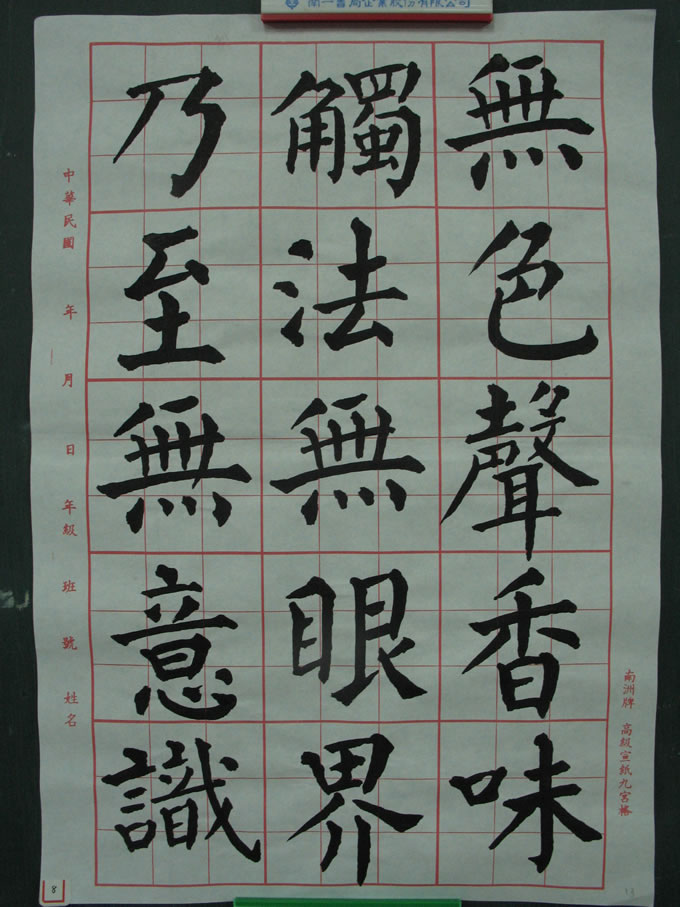 南一書局企業股份有限公司
無色聲香味
觸法無眼界
乃至無意識
中華民國 年 月 日 年級 班 號 姓名
南洲牌 高級宣紙九宮格
8
13